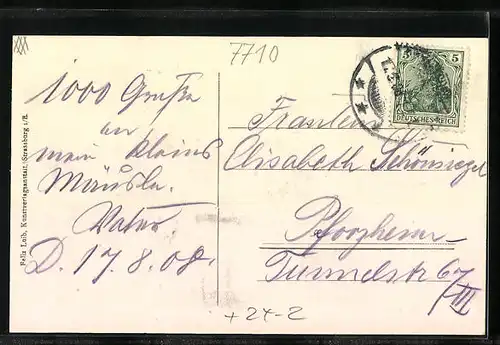 7710
5 5
DEUTSCHES REICH
1000 Grüße
an
mein kleines
Mäusla.
Vater.
D. 17.8.08.
Fräulein
Elisabeth Schönsiegel
Pforzheim
Tunnelstr 67
III
+24-2
Felix Luib, Kunstverlagsanstalt, Strassburg i/E.